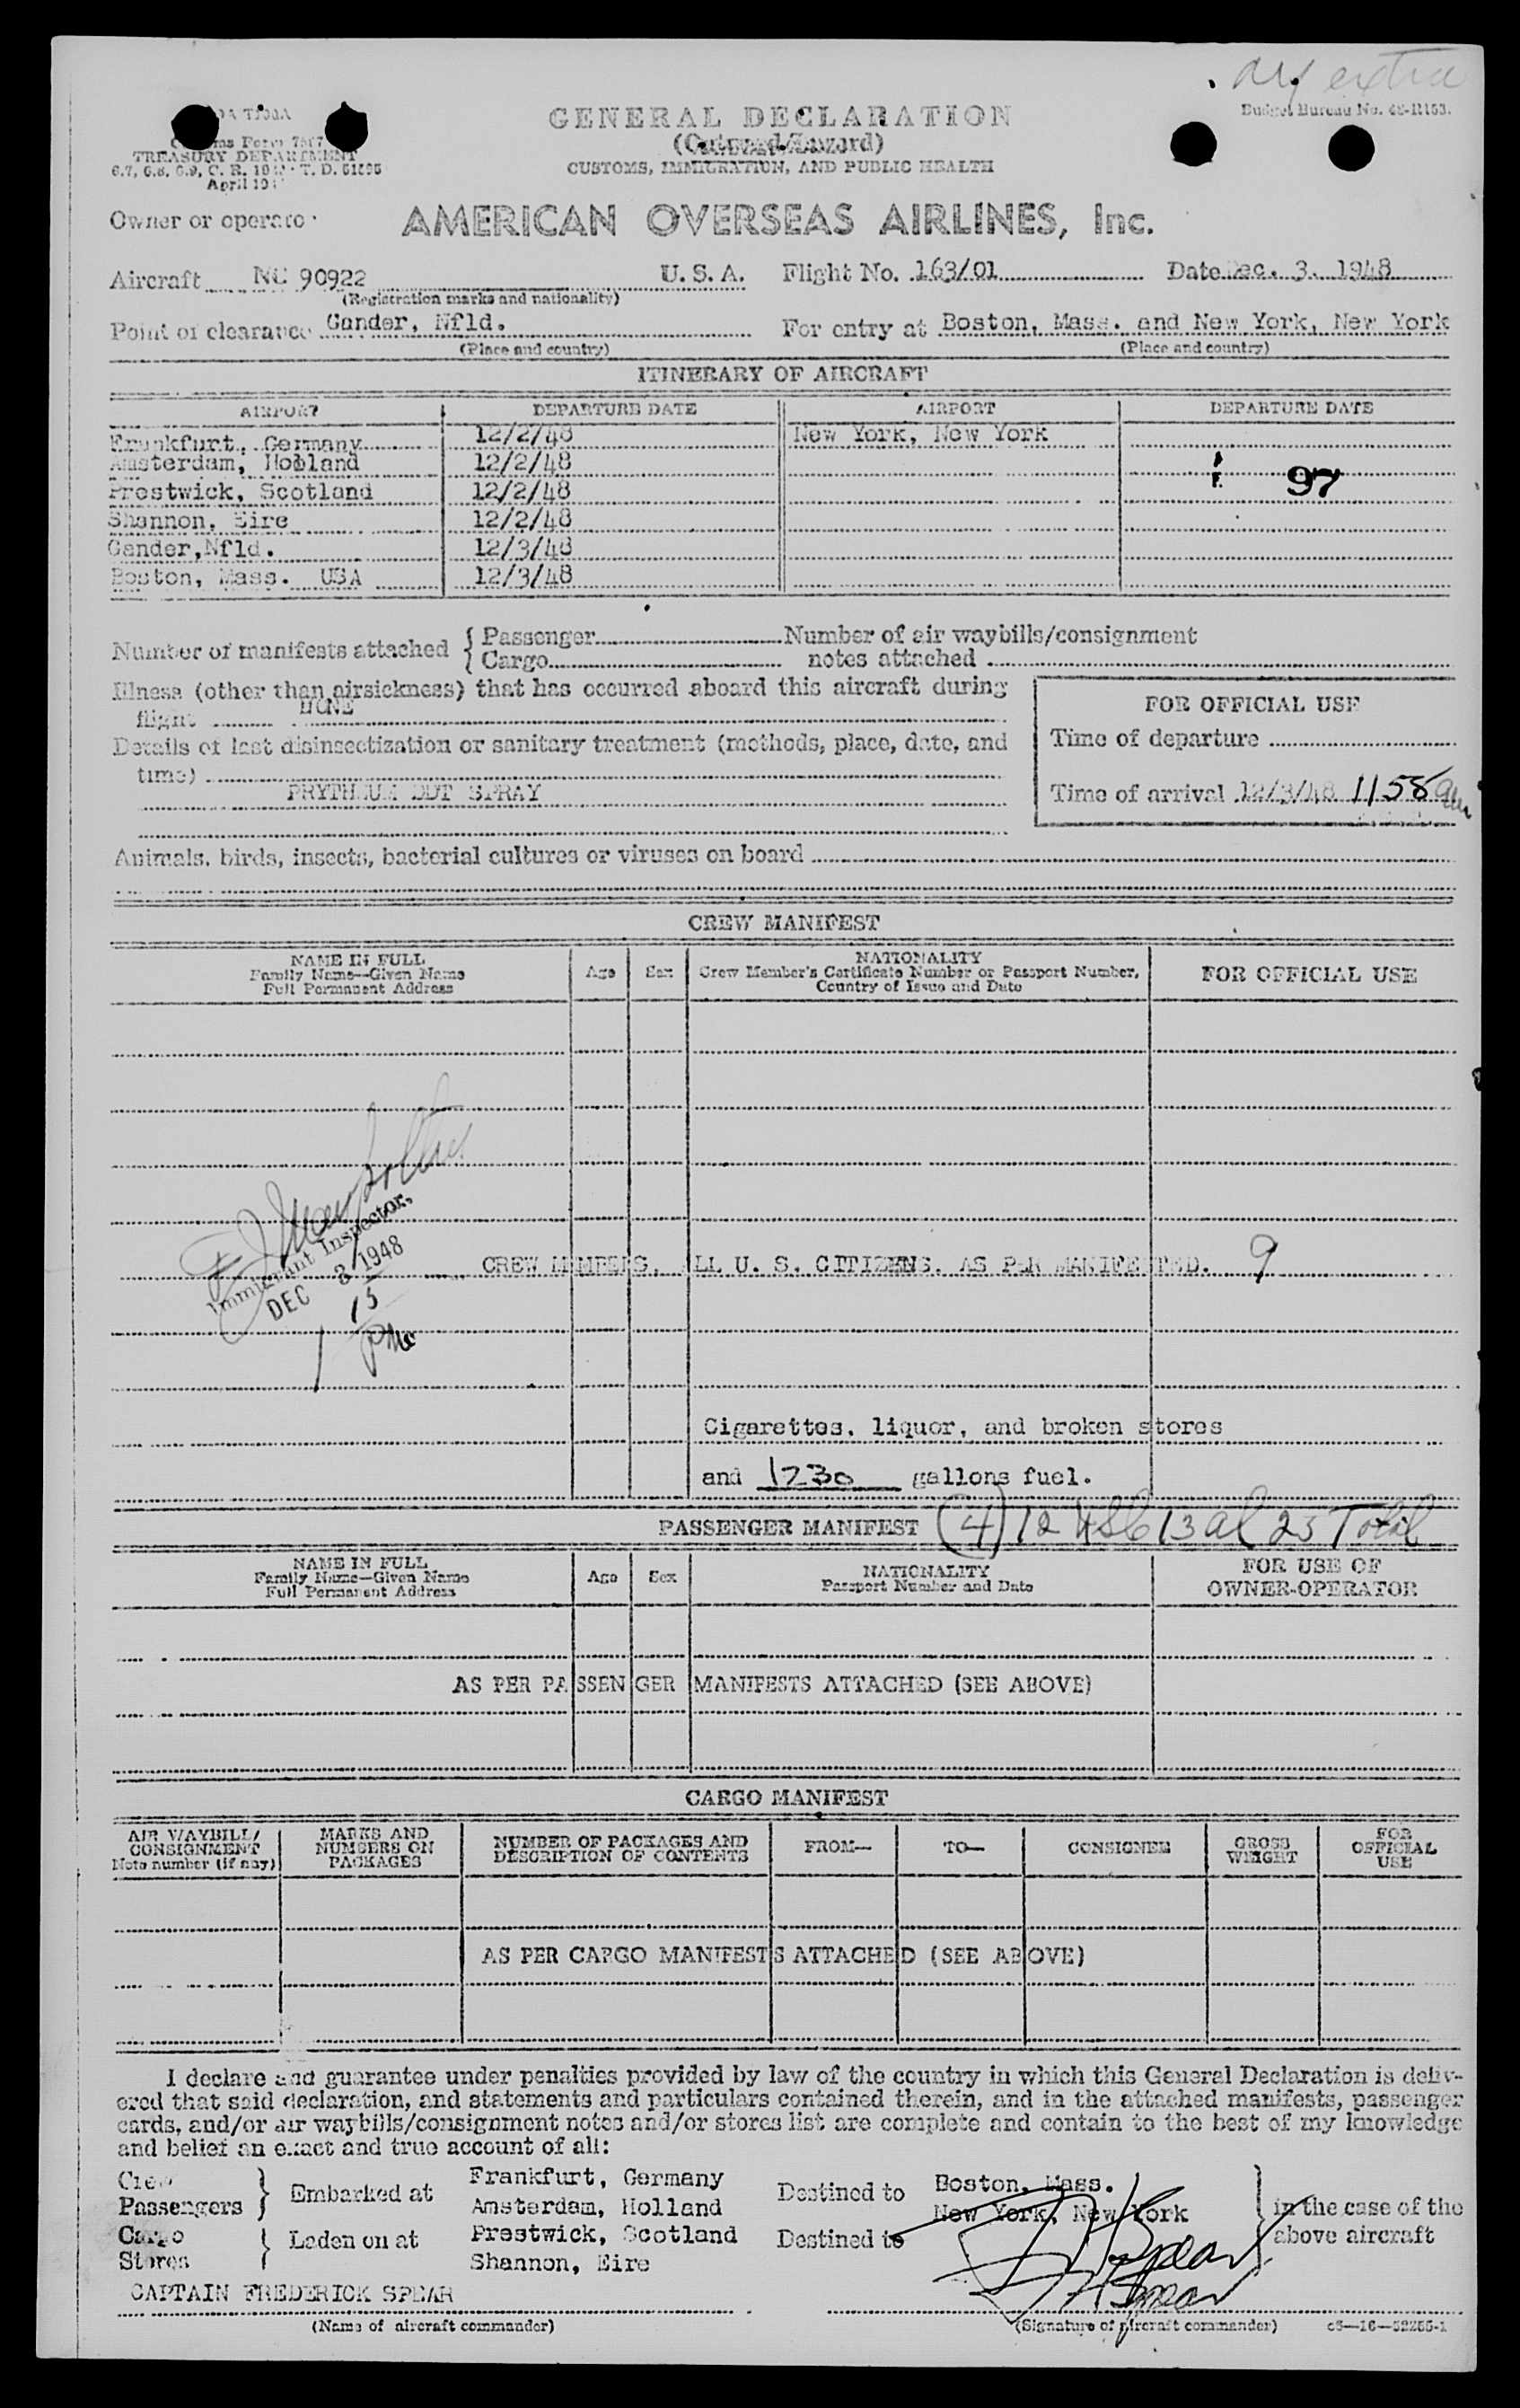 extra
Budget Bureau No. 48-R153.
GENERAL DECLARATION
(Outward/Inward)
TREASURY DEPARTMENT
CUSTOMS, IMMIGRATION, AND PUBLIC HEALTH
Owner or operator
AMERICAN OVERSEAS AIRLINES, Inc.
Aircraft NC 90922 U. S. A. Flight No. 163/01 Date Dec. 3. 1948
(Registration marks and nationality)
Point of clearance Gander, Nfld. For entry at Boston, Mass. and New York, New York
(Place and country) (Place and country)
ITINERARY OF AIRCRAFT
AIRPORT DEPARTURE DATE AIRPORT DEPARTURE DATE
Frankfurt, Germany 12/2/48 New York, New York
Amsterdam, Holland 12/2/48
97
Prestwick, Scotland 12/2/48
Shannon, Eire 12/2/48
Gander, Nfld. 12/3/48
Boston, Mass. USA 12/3/48
Number of manifests attached { Passenger Number of air waybills/consignment
{ Cargo notes attached
Illness (other than airsickness) that has occurred aboard this aircraft during
flight NONE
FOR OFFICIAL USE
Details of last disinsectization or sanitary treatment (methods, place, date, and
time)
Time of departure
PRYTHEUM DDT SPRAY
Time of arrival 12/3/48 1158 am
Animals, birds, insects, bacterial cultures or viruses on board
CREW MANIFEST
NAME IN FULL
Family Name—Given Name
Full Permanent Address
Age Sex
NATIONALITY
Crew Member's Certificate Number or Passport Number,
Country of Issue and Date
FOR OFFICIAL USE
Immigrant Inspector,
DEC 3 1948
1 15
PM
CREW MEMBERS, ALL U. S. CITIZENS. AS PER MANIFESTED. 9
Cigarettes, liquor, and broken stores
and 1230 gallons fuel.
PASSENGER MANIFEST (4) 12 USC 13 al 25 Total
NAME IN FULL
Family Name—Given Name
Full Permanent Address
Age Sex
NATIONALITY
Passport Number and Date
FOR USE OF
OWNER-OPERATOR
AS PER PASSENGER MANIFESTS ATTACHED (SEE ABOVE)
CARGO MANIFEST
AIR WAYBILL/
CONSIGNMENT
Note number (if any)
MARKS AND
NUMBERS ON
PACKAGES
NUMBER OF PACKAGES AND
DESCRIPTION OF CONTENTS
FROM— TO— CONSIGNEE
GROSS
WEIGHT
FOR
OFFICIAL
USE
AS PER CARGO MANIFESTS ATTACHED (SEE ABOVE)
I declare and guarantee under penalties provided by law of the country in which this General Declaration is deliv-
ered that said declaration, and statements and particulars contained therein, and in the attached manifests, passenger
cards, and/or air waybills/consignment notes and/or stores list are complete and contain to the best of my knowledge
and belief an exact and true account of all:
Crew
Passengers } Embarked at
Cargo
Stores } Laden on at
Frankfurt, Germany
Amsterdam, Holland
Prestwick, Scotland
Shannon, Eire
Destined to Boston, Mass.
New York, New York
Destined to
} in the case of the
above aircraft
CAPTAIN FREDERICK SPEAR
F H Spear
F H Spear
(Name of aircraft commander) (Signature of aircraft commander) c3—16—52255-1